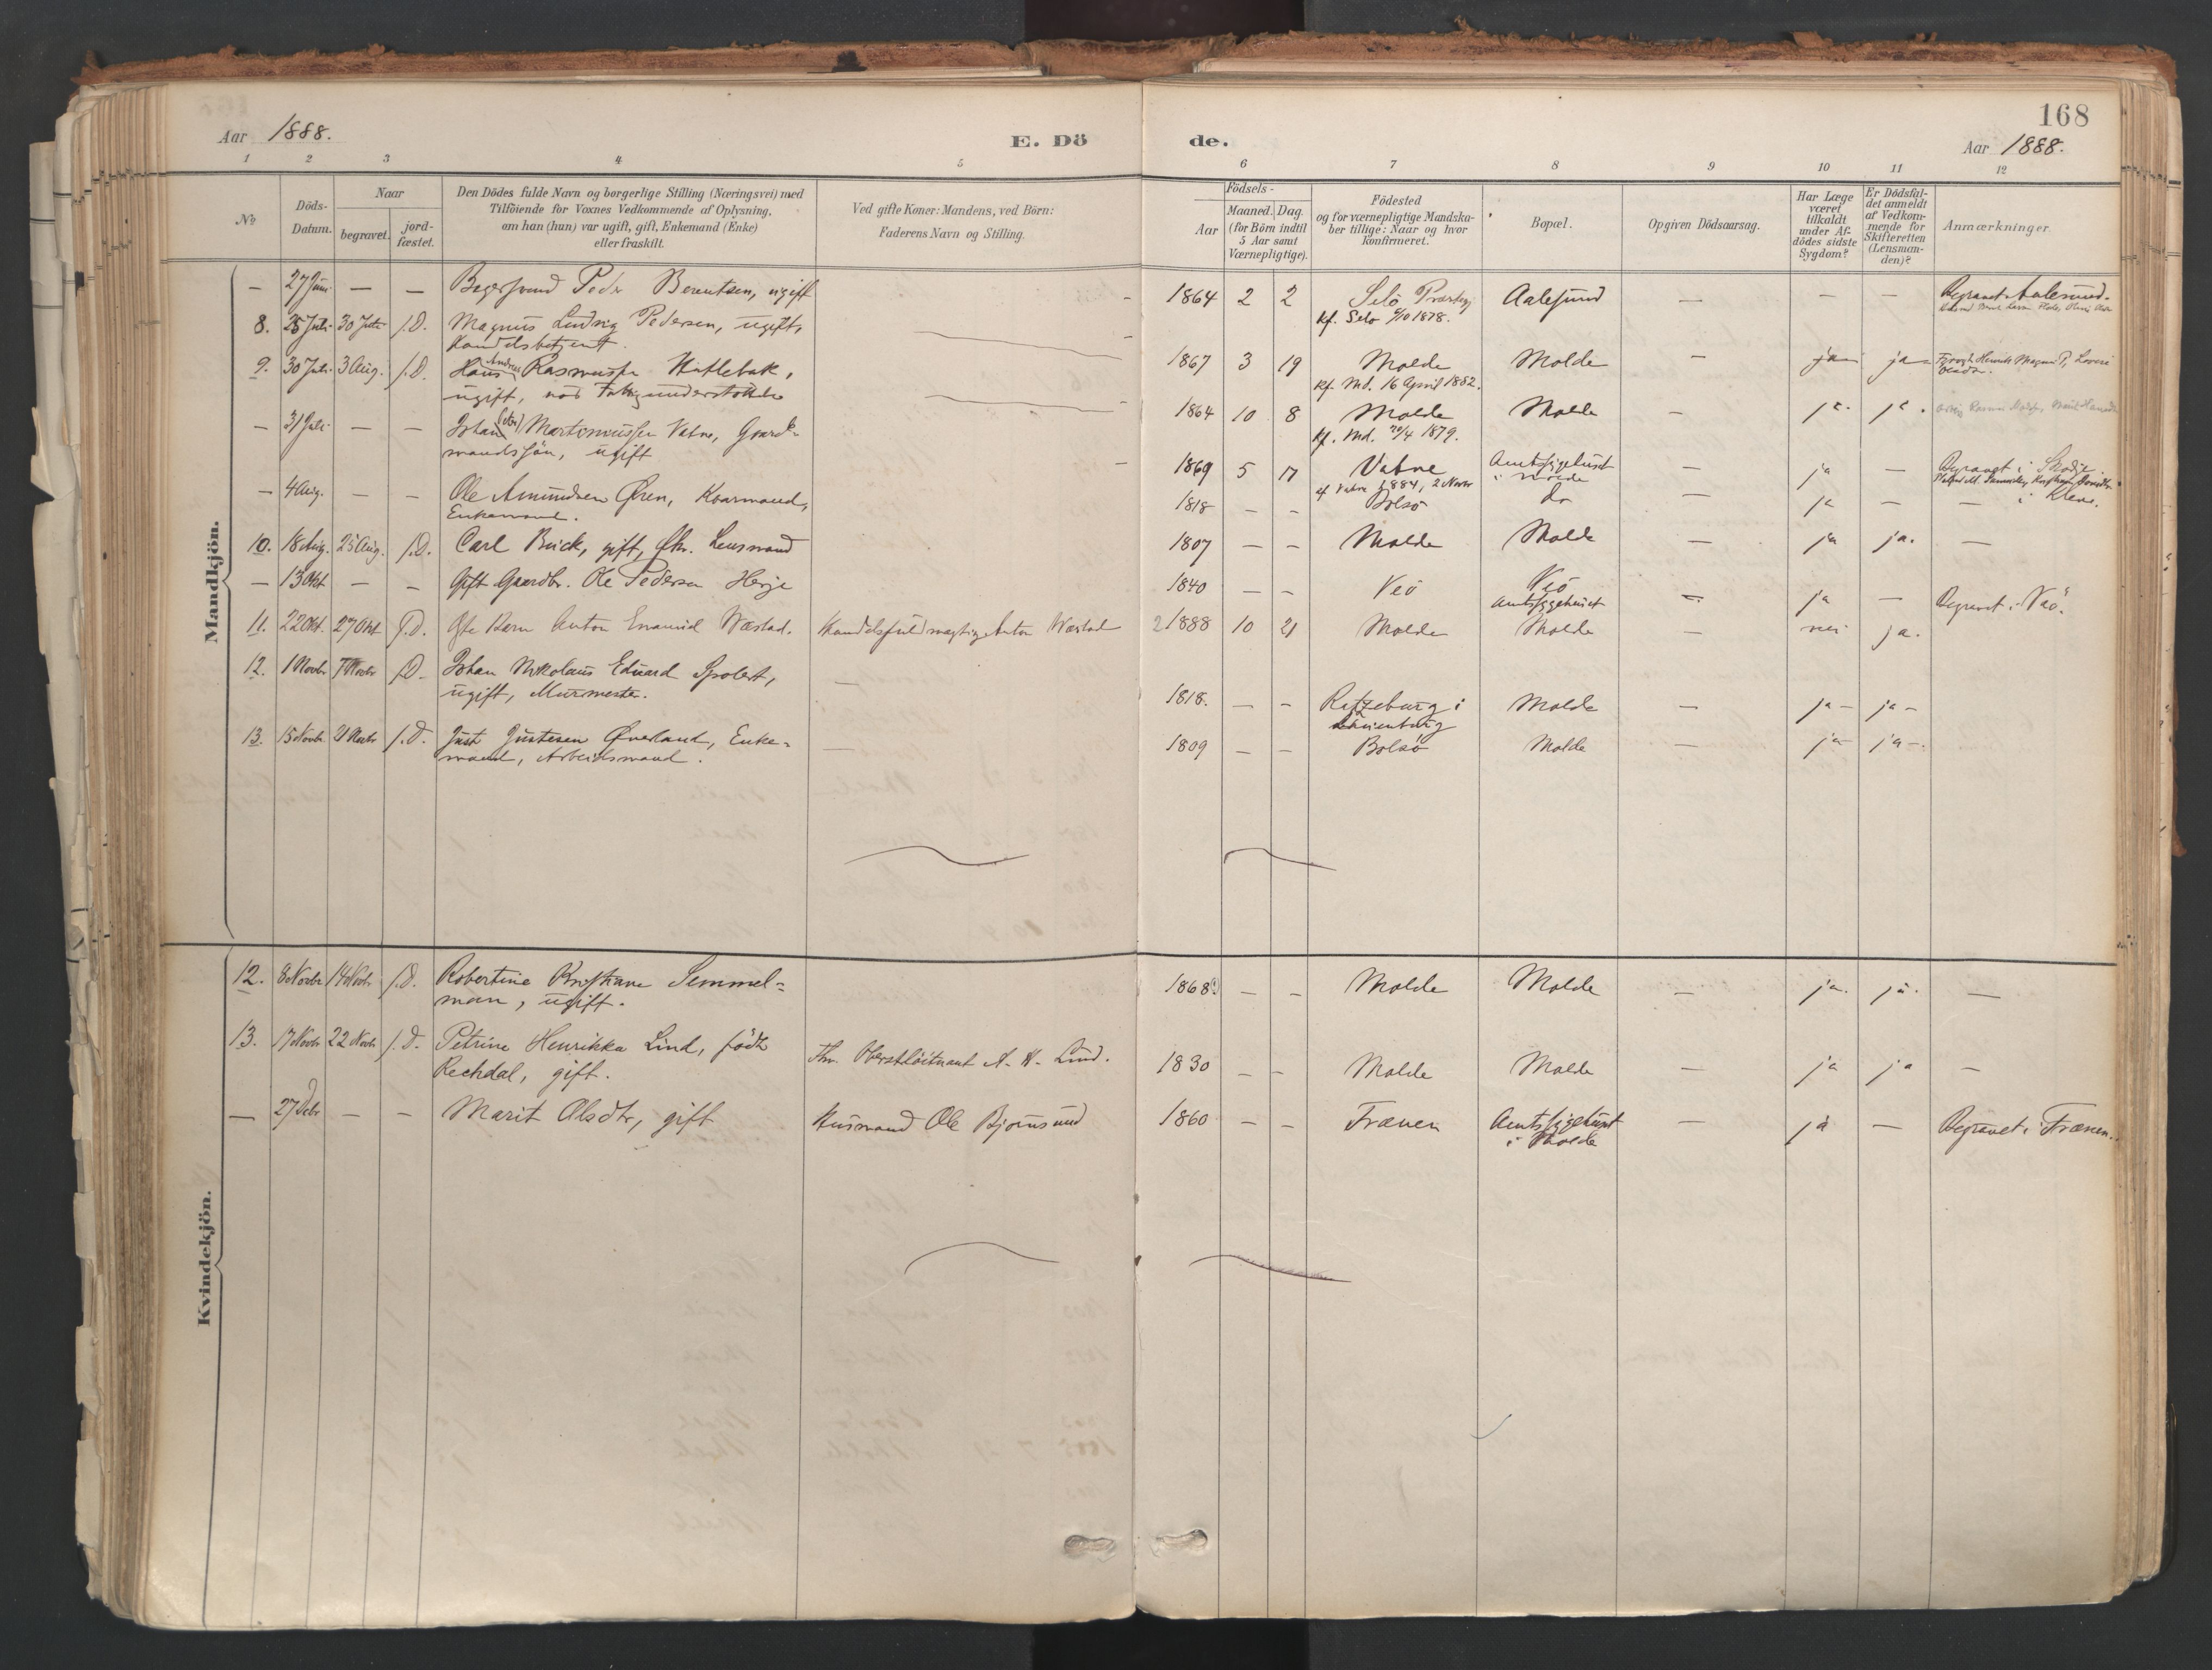 168
Aar 1888.
E. Dö
de.
Aar 1888.
1 2 3 4 5 6 7 8 9 10 11 12
No
Döds-
Datum.
Naar
begravet.
jord-
fæstet.
Den Dödes fulde Navn og borgerlige Stilling (Næringsvei) med
Tilföiende for Voxnes Vedkommende af Oplysning,
om han (hun) var ugift, gift, Enkemand (Enke)
eller fraskilt.
Ved gifte Koner: Mandens, ved Börn:
Faderens Navn og Stilling.
Födsels-
Aar
Maaned. Dag.
(for Börn indtil
5 Aar samt
Værnepligtige).
Födested
og for værnepligtige Mandska-
ber tillige: Naar og hvor
konfirmeret.
Bopæl.
Opgiven Dödsaarsag.
Har Læge
været
tilkaldt
under Af-
dödes sidste
Sygdom?
Er Dödsfal-
det anmeldt
af Vedkom-
mende for
Skifteretten
(Lensman-
den)?
Anmærkninger.
Mandkjön.
— 27 Juni — — Peder Berentsen, ugift — 1864 2 2 Selö Aalesund — — — Begravet Aalesund.
kf. Selö 1878.
8. 25 Juli 30 Juli J.D. Magnus Ludvig Pedersen, ugift,
Handelsbetjent. — 1867 3 19 Molde Molde — ja ja
kf. Md. 16 April 1882.
9. 30 Juli 3 Aug. J.D. Hans Andreas Rasmussen
ugift, nöd — 1864 10 8 Molde Molde — ja. ja.
kf. Md. 20/4 1879.
— 31 Juli — — Johan Martinussen Vatne, Gaard-
mandssön, ugift — 1869 5 17 Vatne Amtssygehuset — ja — Begravet i Skodje
i Molde
kf Vatne 1884, 2 Novbr
— 4 Aug. — — Ole Amundsen Øren, Kaarmand,
Enkemand. 1818 — — Bolsö do — ja — — i Kleve.
10. 18 Aug. 25 Aug. J.D. Carl Buck, gift, Lensmand 1807 — — Molde Molde — ja ja. —
— 13 Okt — — Gift Gaardbr. Ole Pedersen Herje 1840 — — Veö Veö
Amtssygehuset — ja — Begravet i Veö.
11. 22 Okt. 27 Okt J.D. Gte Barn Anton Enamid Wæstad. Handelsfuldmægtig Anton Wæstad 2 1888 10 21 Molde Molde — nei ja.
12. 1 Novbr 7 Novbr J.D. Johan Nikolaus Eduard Spolert,
ugift, Murmester. — 1818. — — Ratzeburg i Molde — ja — ja —
13. 15 Novbr 21 Novbr J.D. Just Justesen Øverland, Enke-
mand, Arbeidsmand. — 1809 — — Bolsö Molde — ja — ja —.
Kvindekjön.
12. 8 Novbr 14 Novbr J.D. Robertine Kristiane Semmel-
man, ugift. 1868 — — Molde Molde — ja. ja. —
13. 17 Novbr 22 Novbr J.D. Petrine Henrikka Lind, födt
Rechdal, gift. Oberstlöitnant A. H. Lind. 1830 — — Molde Molde — ja ja —
— 27 Debr — — Marit Olsdtr, gift Husmand Ole Bjornsund 1860 — — Frænen Amtssygehuset
i Molde — ja — Begravet i Frænen.